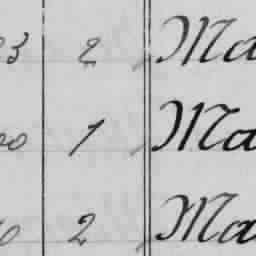 3 2 Ma
00 1 Ma
0 2 Ma